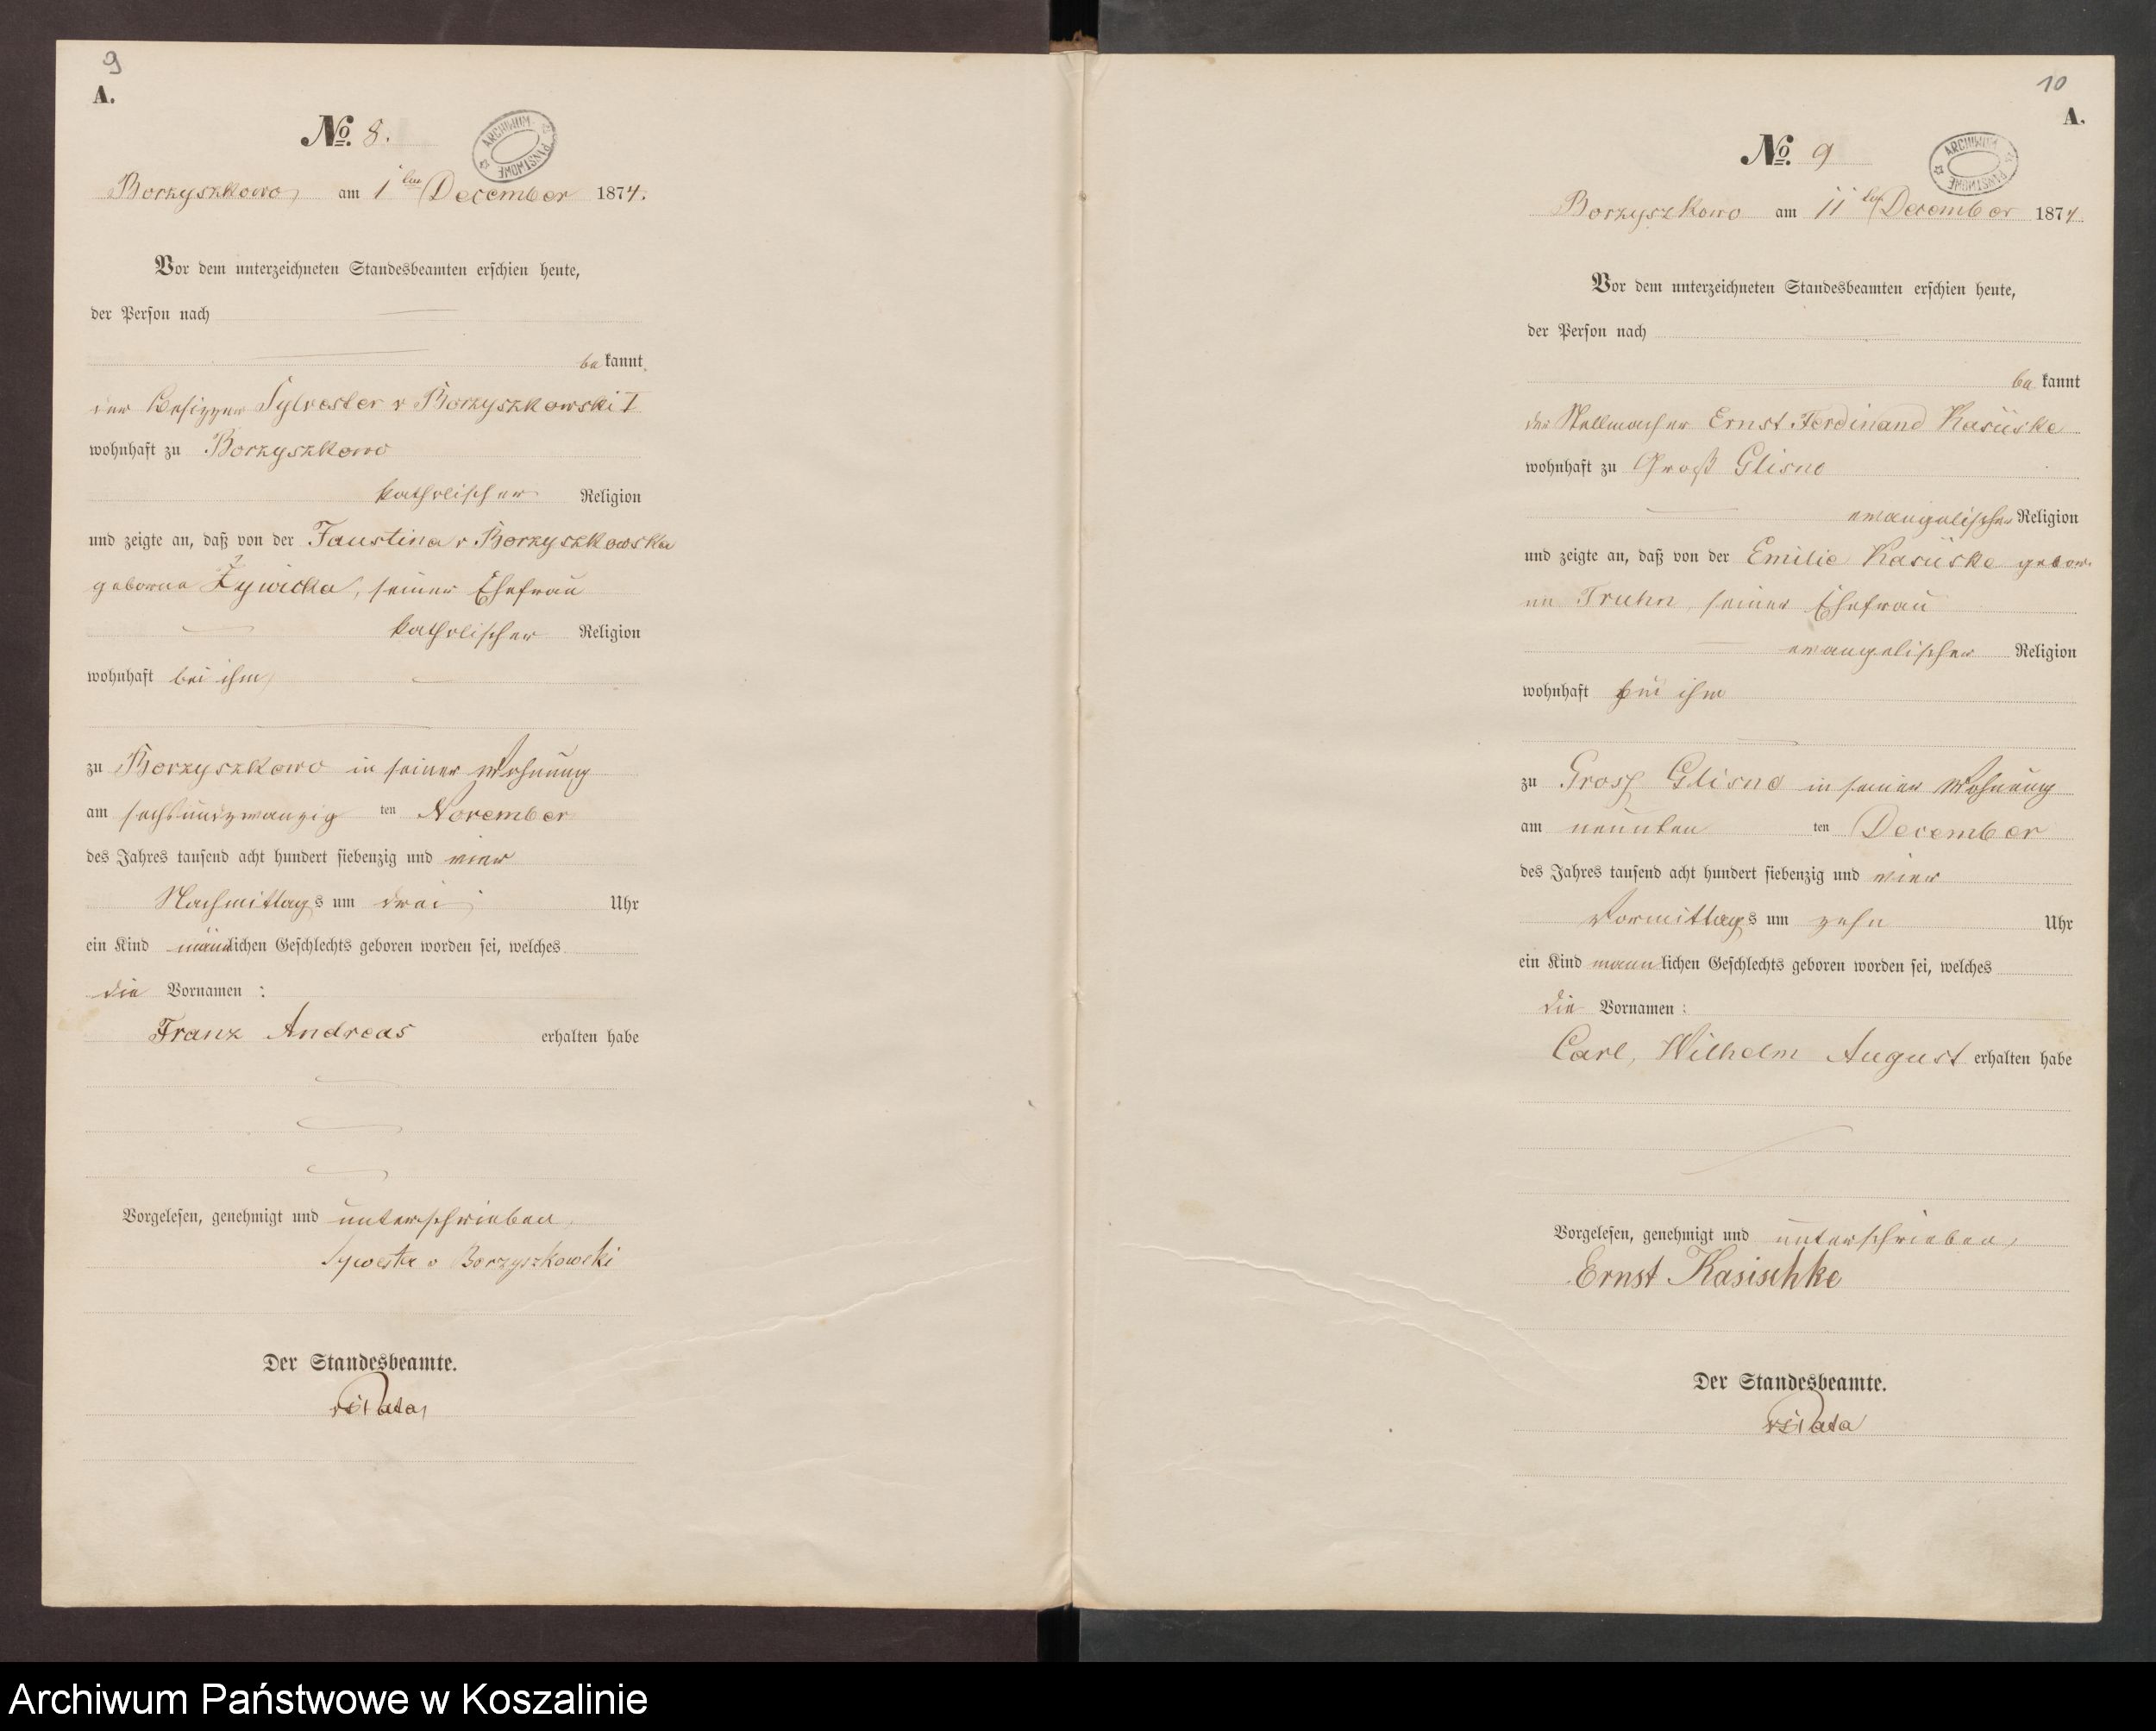 9
A.
No. 8.
ARCHIWUM PAŃSTWOWE
Borzyszkowo, am 1ten December 1874.
Vor dem unterzeichneten Standesbeamten erschien heute,
der Person nach
bekannt,
der Besitzer Sylvester v Borzyszkowski I
wohnhaft zu Borzyszkowo
katholischer Religion
und zeigte an, daß von der Faustina v Borzyszkowska
geborne Żywicka, seiner Ehefrau
katholischer Religion
wohnhaft bei ihm,
zu Borzyszkowo in seiner Wohnung
am sechsundzwanzig ten November
des Jahres tausend acht hundert siebenzig und vier
Nachmittags um drei Uhr
ein Kind männlichen Geschlechts geboren worden sei, welches
die Vornamen :
Franz Andreas erhalten habe
Vorgelesen, genehmigt und unterschrieben,
Sywester v Borzyszkowski
Der Standesbeamte.
10
A.
No. 9
ARCHIWUM PAŃSTWOWE
Borzyszkowo am 11ten December 1874
Vor dem unterzeichneten Standesbeamten erschien heute,
der Person nach
bekannt
der Stellmacher Ernst Ferdinand Kasiiske
wohnhaft zu Groß Glisno
evangelischer Religion
und zeigte an, daß von der Emilie Kasiiske gebor-
ne Truhn, seiner Ehefrau
evangelischer Religion
wohnhaft bei ihm
zu Gross Glisno in seiner Wohnung
am neunten ten December
des Jahres tausend acht hundert siebenzig und vier
Vormittags um zehn Uhr
ein Kind männlichen Geschlechts geboren worden sei, welches
die Vornamen :
Carl, Wilhelm August erhalten habe
Vorgelesen, genehmigt und unterschrieben,
Ernst Kasischke
Der Standesbeamte.
Archiwum Państwowe w Koszalinie